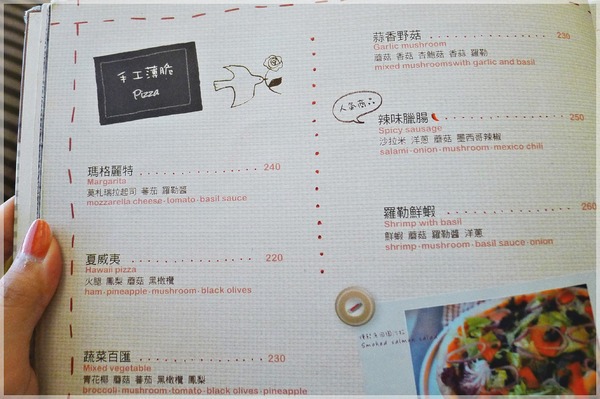 手工薄脆
Pizza
瑪格麗特 240
Margarita
莫札瑞拉起司 蕃茄 羅勒醬
mozzarella cheese·tomato·basil sauce
夏威夷 220
Hawaii pizza
火腿 鳳梨 蘑菇 黑橄欖
ham·pineapple·mushroom·black olives
蔬菜百匯 230
Mixed vegetable
青花椰 蘑菇 蕃茄 黑橄欖 鳳梨
broccoli·mushroom·tomato·black olives·pineapple
蒜香野菇 230
Garlic mushroom
蘑菇 香菇 杏鮑菇 香菇 羅勒
mixed mushroomswith garlic and basil
人氣商品
辣味臘腸 250
Spicy sausage
沙拉米 洋蔥 蘑菇 墨西哥辣椒
salami·onion·mushroom·mexico chili
羅勒鮮蝦 260
Shrimp with basil
鮮蝦 蘑菇 羅勒醬 洋蔥
shrimp·mushroom·basil sauce·onion
Smoked salmon